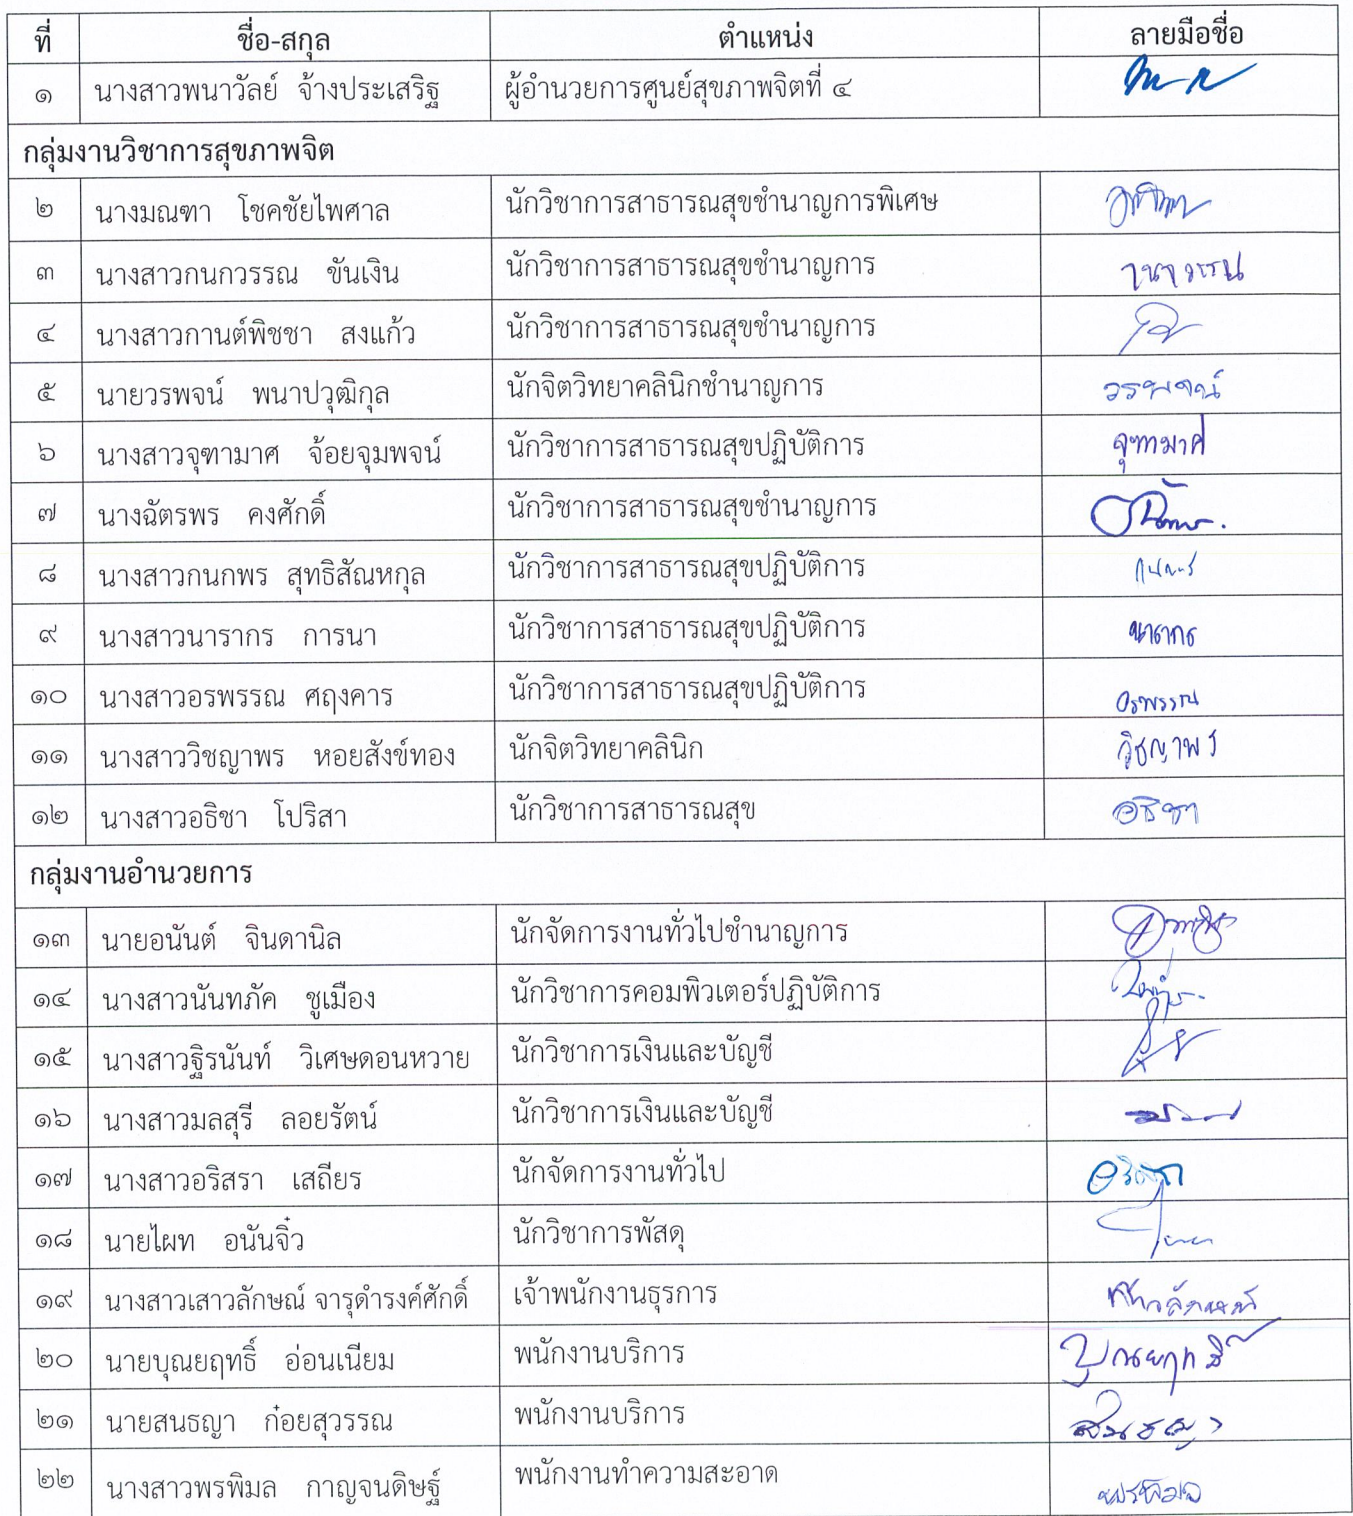 ที่ ชื่อ-สกุล ตำแหน่ง ลายมือชื่อ
๑ นางสาวพนาวัลย์ จ้างประเสริฐ ผู้อำนวยการศูนย์สุขภาพจิตที่ ๔
กลุ่มงานวิชาการสุขภาพจิต
๒ นางมณฑา โชคชัยไพศาล นักวิชาการสาธารณสุขชำนาญการพิเศษ
๓ นางสาวกนกวรรณ ขันเงิน นักวิชาการสาธารณสุขชำนาญการ
๔ นางสาวกานต์พิชชา สงแก้ว นักวิชาการสาธารณสุขชำนาญการ
๕ นายวรพจน์ พนาปวุฒิกุล นักจิตวิทยาคลินิกชำนาญการ วรพจน์
๖ นางสาวจุฑามาศ จ้อยจุมพจน์ นักวิชาการสาธารณสุขปฏิบัติการ จุฑามาศ
๗ นางฉัตรพร คงศักดิ์ นักวิชาการสาธารณสุขชำนาญการ
๘ นางสาวกนกพร สุทธิสัณหกุล นักวิชาการสาธารณสุขปฏิบัติการ
๙ นางสาวนารากร การนา นักวิชาการสาธารณสุขปฏิบัติการ นารากร
๑๐ นางสาวอรพรรณ ศฤงคาร นักวิชาการสาธารณสุขปฏิบัติการ อรพรรณ
๑๑ นางสาววิชญาพร หอยสังข์ทอง นักจิตวิทยาคลินิก วิชญาพร
๑๒ นางสาวอธิชา โปริสา นักวิชาการสาธารณสุข อธิชา
กลุ่มงานอำนวยการ
๑๓ นายอนันต์ จินดานิล นักจัดการงานทั่วไปชำนาญการ
๑๔ นางสาวนันทภัค ชูเมือง นักวิชาการคอมพิวเตอร์ปฏิบัติการ
๑๕ นางสาวฐิรนันท์ วิเศษดอนหวาย นักวิชาการเงินและบัญชี
๑๖ นางสาวมลสุรี ลอยรัตน์ นักวิชาการเงินและบัญชี
๑๗ นางสาวอริสรา เสถียร นักจัดการงานทั่วไป
๑๘ นายไผท อนันจิ๋ว นักวิชาการพัสดุ
๑๙ นางสาวเสาวลักษณ์ จารุดำรงค์ศักดิ์ เจ้าพนักงานธุรการ
๒๐ นายบุณยฤทธิ์ อ่อนเนียม พนักงานบริการ บุณยฤทธิ์
๒๑ นายสนธญา ก๋อยสุวรรณ พนักงานบริการ สนธญา
๒๒ นางสาวพรพิมล กาญจนดิษฐ์ พนักงานทำความสะอาด พรพิมล